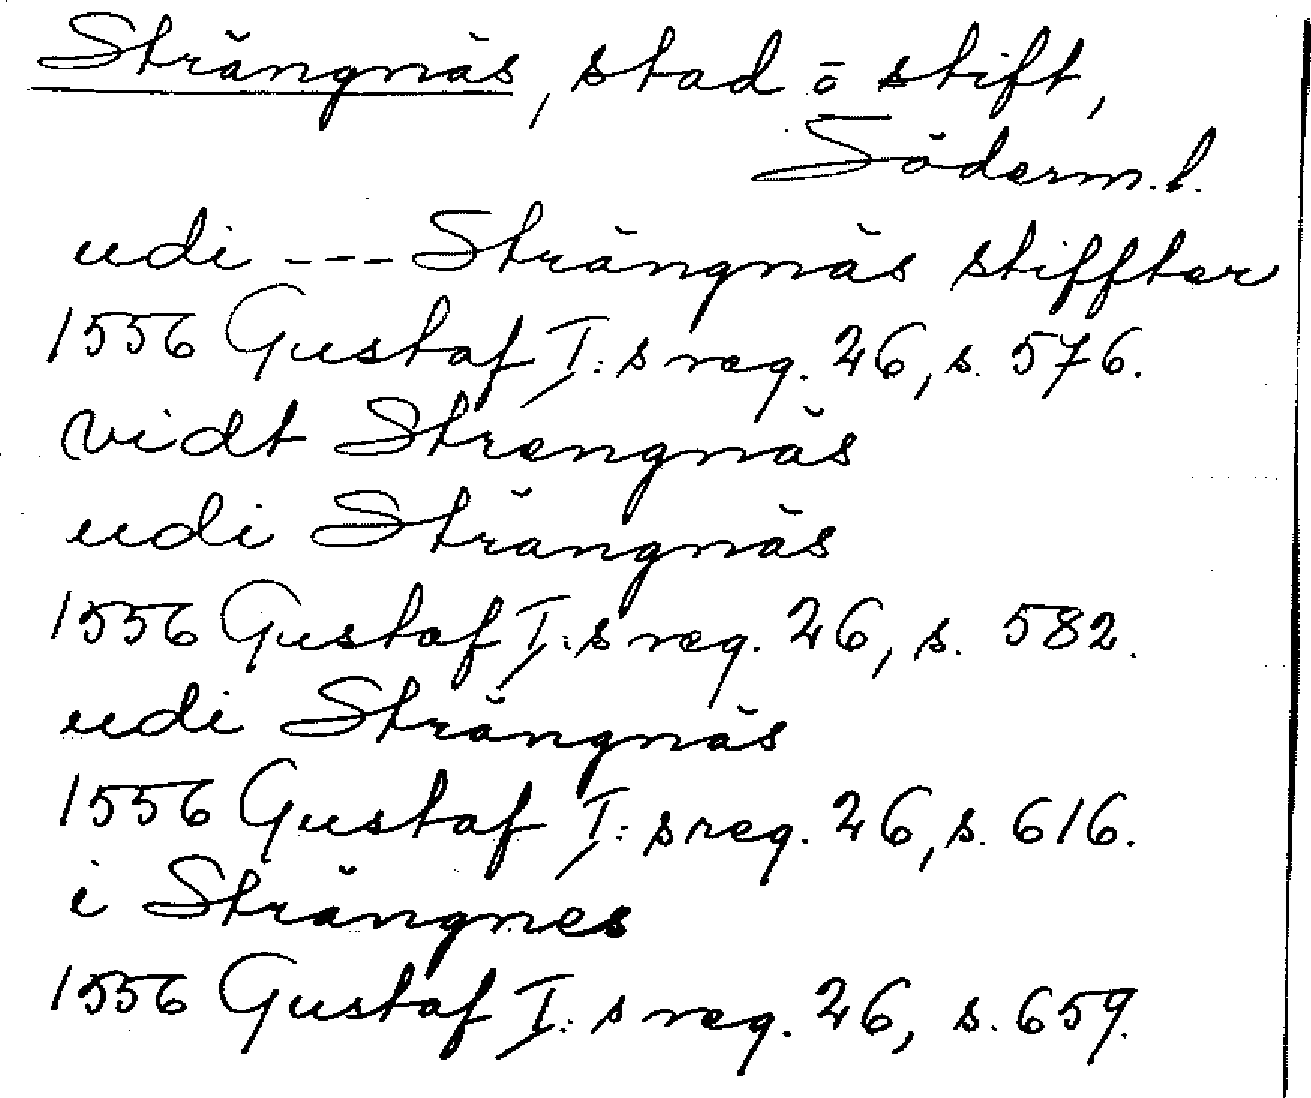 Strängnäs, stad o stift,
Söderm.l.
udi --- Strängnäs stiffter
1556 Gustaf I:s reg. 26, s. 576.
vidt Strengnäs
udi Strängnäs
1556 Gustaf I:s reg. 26, s. 582.
udi Strängnäs
1556 Gustaf I:s reg. 26, s. 616.
i Strängnes
1556 Gustaf I:s reg. 26, s. 659.